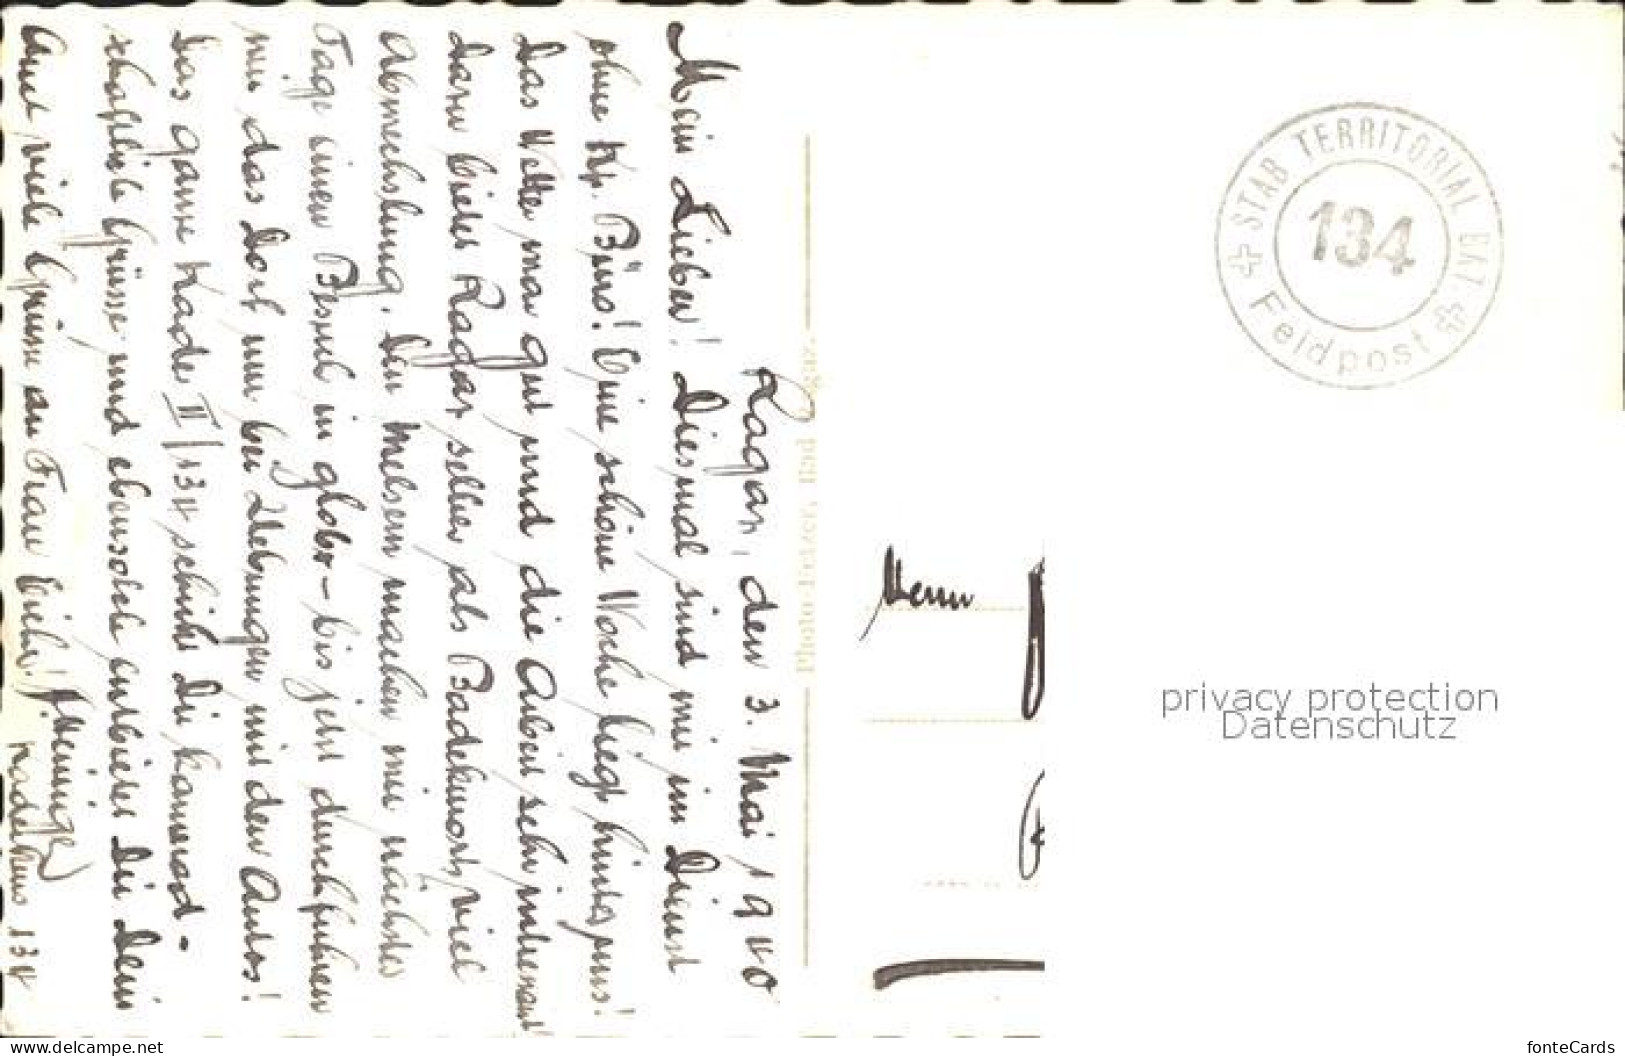 Ragaz, den 3. Mai 1940
Mein Lieber! Diesmal sind wir im Dienst
ohne Kp. Büro! Eine schöne Woche liegt hinter uns!
Das Wetter war gut und die Arbeit sehr interessant!
Dann bietet Ragaz selber als Badekurort viel
Abwechslung. Den Melsern machen wir nächster
Tage einen Besuch in globo - bis jetzt durchfuhren
wir das Dorf nur bei Uebungen mit den Autos!
Das ganze Kader II/134 schickt Dir kamerad-
schaftliche Grüsse und ebensolche entbietet Dir Dein
Auch viele Grüsse an Frau
Kaderkurs 134
Photo-Fetzer, Bad Ragaz.
Herrn
STAB TERRITORIAL BAT.
134
Feldpost
privacy protection
Datenschutz
www.delcampe.net
fonteCards